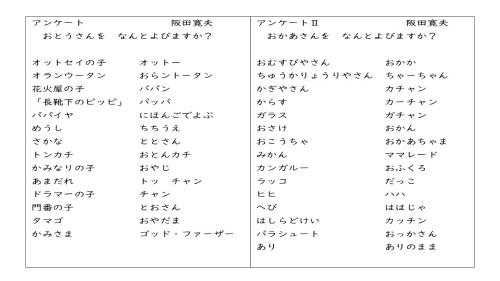 アンケート　阪田寛夫
おとうさんを　なんとよびますか？
オットセイの子　オットー
オランウータン　おらントータン
花火屋の子　パパン
「長靴下のピッピ」　パッパ
パパイヤ　にほんごでよぶ
めうし　ちちうえ
さかな　ととさん
トンカチ　おとんカチ
かみなりの子　おやじ
あまだれ　トッ　チャン
ドラマーの子　チャン
門番の子　とおさん
タマゴ　おやだま
かみさま　ゴッド・ファーザー
アンケートⅡ　阪田寛夫
おかあさんを　なんとよびますか？
おむすびやさん　おかか
ちゅうかりょうりやさん　ちゃーちゃん
かぎやさん　カチャン
からす　カーチャン
ガラス　ガチャン
おさけ　おかん
おこうちゃ　おかあちゃま
みかん　ママレード
カンガルー　おふくろ
ラッコ　だっこ
ヒヒ　ハハ
へび　ははじゃ
はしらどけい　カッチン
パラシュート　おっかさん
あり　ありのまま